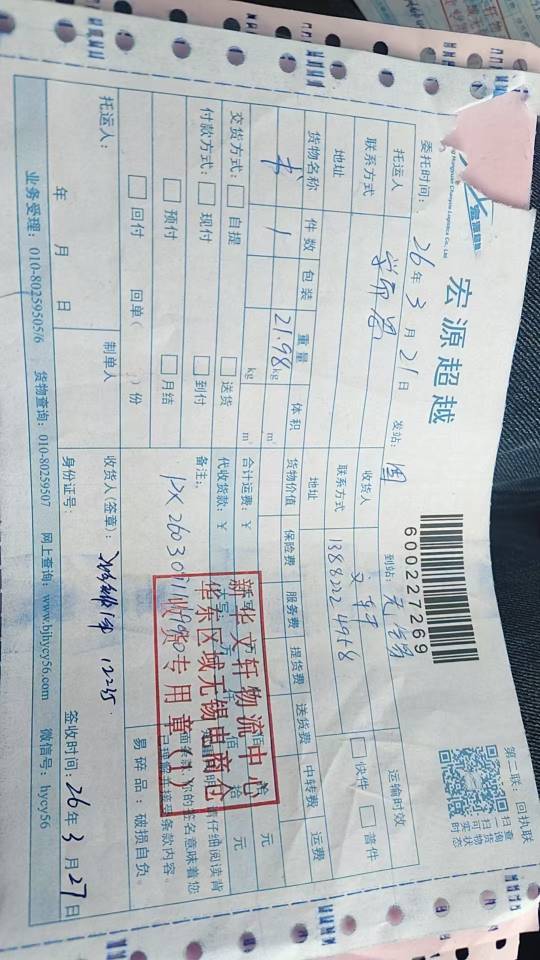 宏源超越
第二联：回执联
扫一扫可实
查询货物状态
600227269
委托时间：26年3月21日 发站： 到站：无锡
托运人 收货人 运输时效
联系方式 联系方式 快件 普件
地址 地址
货物名称 件数 包装 重量 体积 货物价值 保险费 服务费 提货费 送货费 中转费 运费
书 1 21.98kg m³
kg m³ 合计运费：￥ 元
交货方式： 自提 送货 代收货款：￥ 元
付款方式： 现付 到付 备注：
预付 月结
回付 回单（ ）份
新华文轩物流中心
华东区域无锡电商仓
收货专用章(1)
请仔细阅读背
你的签名意味着您
条款内容。
易碎品：破损自负。
托运人： 制单人 收货人(签章)： 1225
年 月 日 身份证号： 签收时间：26年3月27日
业务受理：010-80259505/6 货物查询：010-80259507 网上查询：www.bjhycy56.com 微信号：hycy56